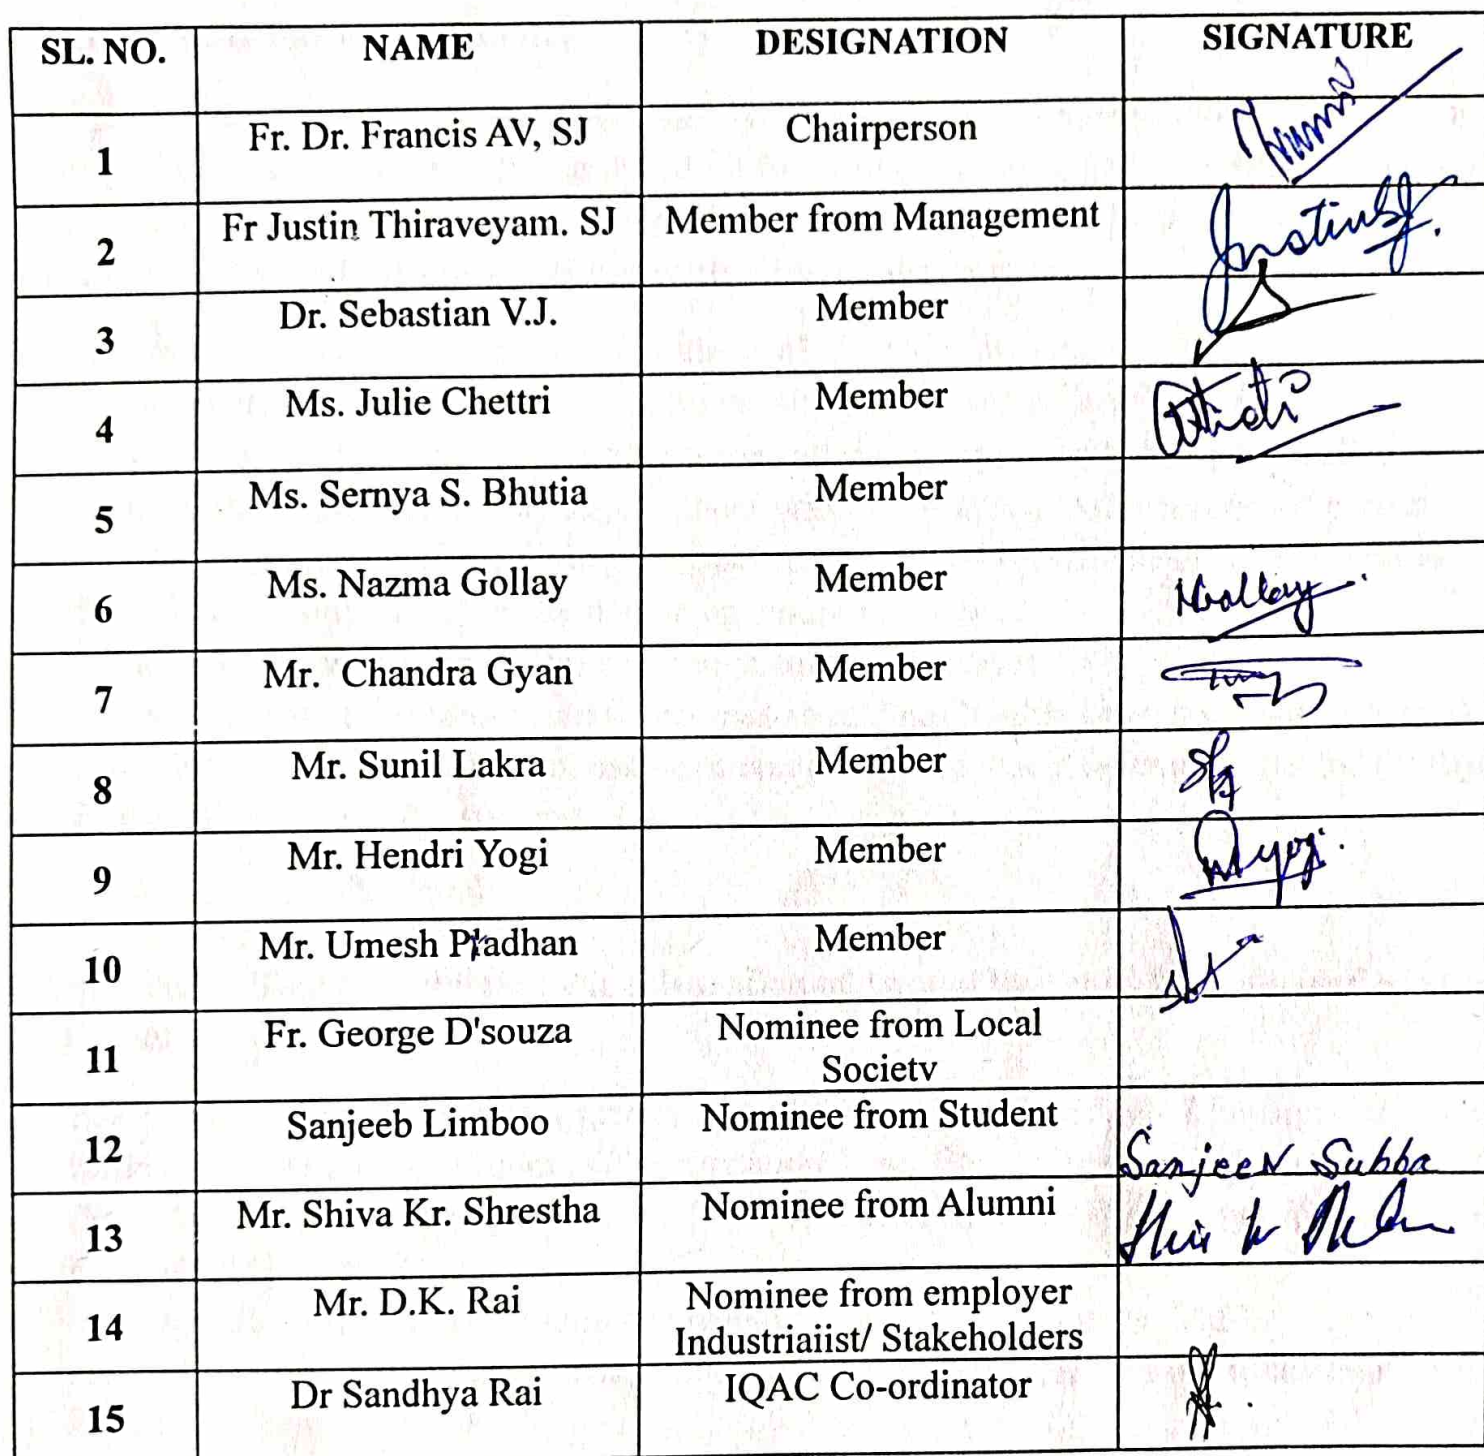 SL. NO. NAME DESIGNATION SIGNATURE
1 Fr. Dr. Francis AV, SJ Chairperson
2 Fr Justin Thiraveyam. SJ Member from Management Justin SJ.
3 Dr. Sebastian V.J. Member
4 Ms. Julie Chettri Member
5 Ms. Sernya S. Bhutia Member
6 Ms. Nazma Gollay Member NGollay
7 Mr. Chandra Gyan Member
8 Mr. Sunil Lakra Member
9 Mr. Hendri Yogi Member
10 Mr. Umesh Pradhan Member
11 Fr. George D'souza Nominee from Local
Society
12 Sanjeeb Limboo Nominee from Student Sanjeev Subba
13 Mr. Shiva Kr. Shrestha Nominee from Alumni
14 Mr. D.K. Rai Nominee from employer
Industriaiist/ Stakeholders
15 Dr Sandhya Rai IQAC Co-ordinator